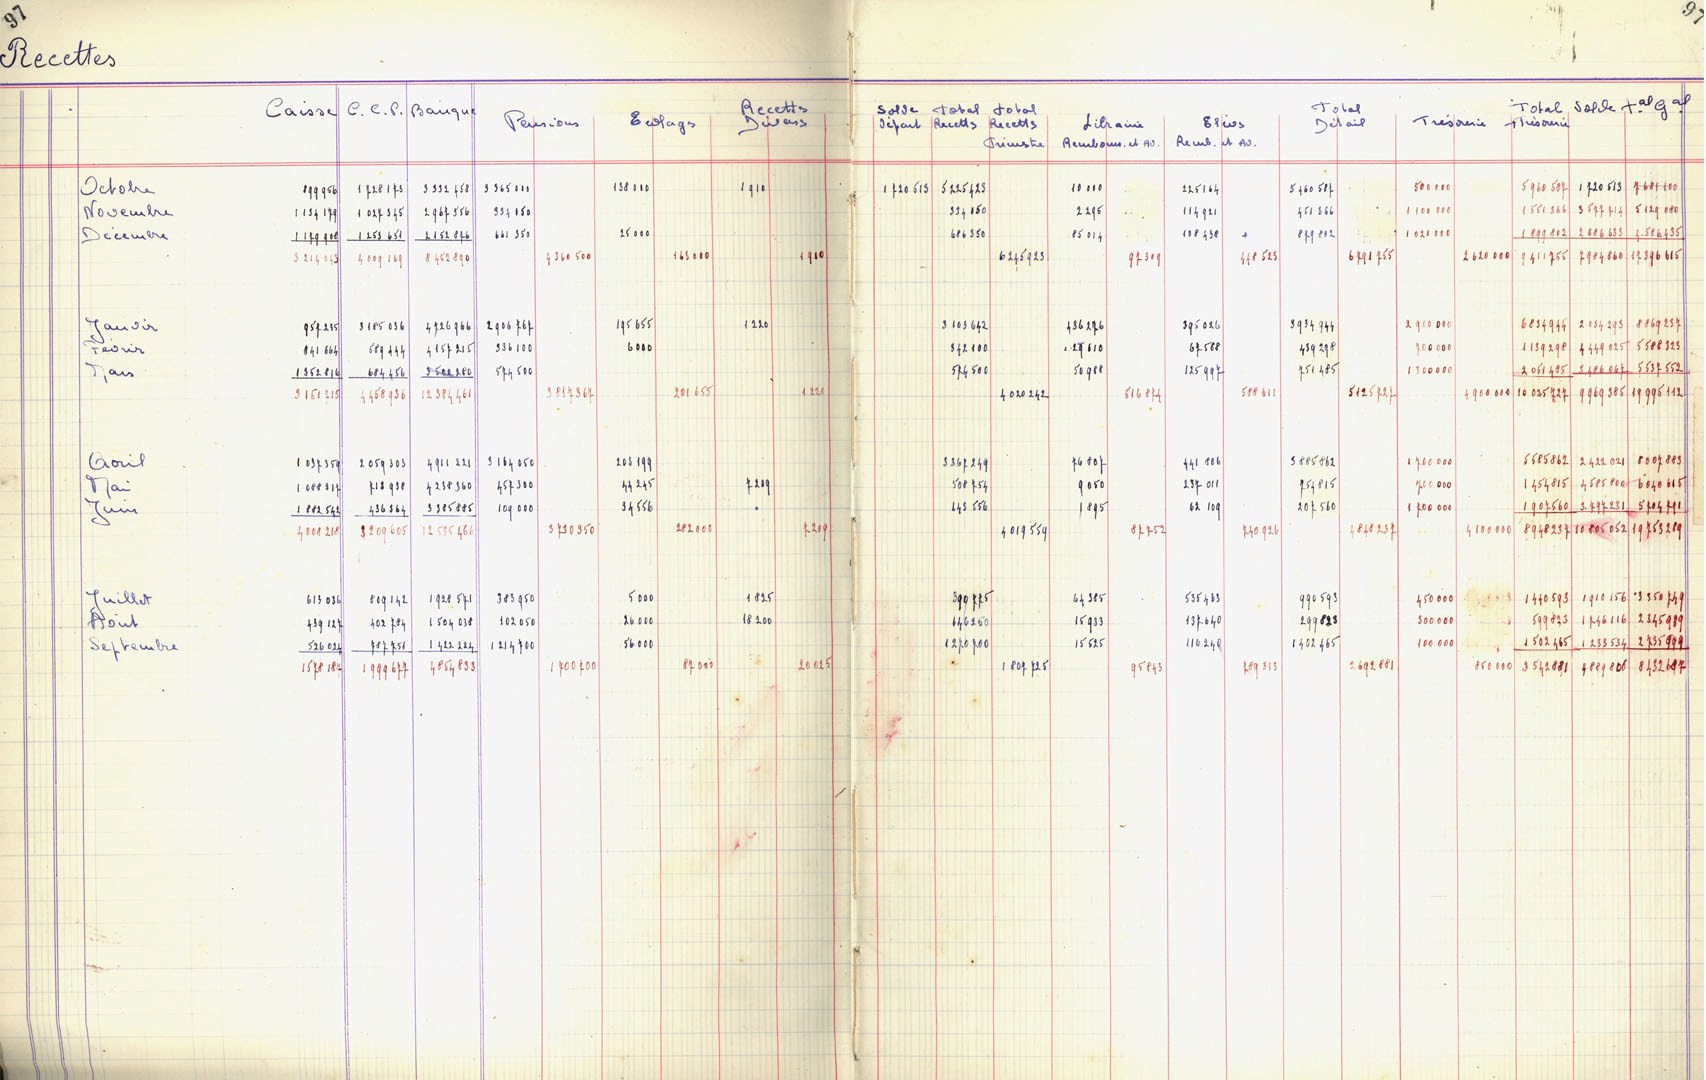 97 97
Recettes
Caisse C.C.P. Banque Pensions Ecolages Recettes Divers Solde Départ Total Recettes Total Recettes Trimestre Librairie Rembours. et Av. Elèves Remb. et Av. Total Détail Trésorerie Total + Trésorerie Solde Tal Gal
Octobre 899956 1728173 3332458 3365000 138000 1910 1720513 5225423 10000 225164 5460587 500000 5960587 1720513 7681100
Novembre 1134179 1027345 2967556 334150 334150 2295 114921 451366 1100000 1551366 3577714 5129080
Décembre 1179908 1253651 2152876 661350 25000 686350 85014 108438 879802 1020000 1899802 2686633 4586435
3214043 4009169 8452890 4360500 163000 1910 6245923 97309 448523 6791755 2620000 9411755 7984860 17396615
Janvier 957235 3185036 4726966 2906767 195655 1220 3103642 436276 395026 3934944 2900000 6834944 2034293 8869237
Février 841664 589444 4157215 336100 6000 342100 29610 67588 439298 700000 1139298 4449025 5588323
Mars 1352816 684456 3500280 574500 574500 50988 125997 751485 1300000 2051485 3486067 5537552
3151715 4458936 12384461 3817367 201655 1220 4020242 516874 588611 5125727 4900000 10025727 9969385 19995112
Avril 1037359 2059303 4911221 3164050 203199 3367249 76807 441806 3885862 1700000 5585862 2422021 8007883
Mai 1088317 713938 4238360 457300 44245 7209 508754 9050 237011 754815 700000 1454815 4585800 6040615
Juin 1882542 436364 3385885 109000 34556 143556 1895 62109 207560 1700000 1907560 3797231 5704791
4008218 3209605 12535466 3730350 282000 7209 4019559 87752 740926 4848237 4100000 8948237 10805052 19753289
Juillet 613036 809142 1928571 383950 5000 1825 390775 64385 535433 990593 450000 1440593 1910156 3350749
Août 439127 402784 1504038 102050 26000 18200 146250 15933 137640 299823 300000 599823 1746116 2345939
Septembre 526024 787751 1422224 1214700 56000 1270700 15525 116240 1402465 100000 1502465 1233534 2735999
1578187 1999677 4854833 1700700 87000 20025 1807725 95843 789313 2692881 850000 3542881 4889806 8432687